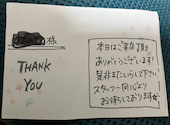 様
THANK
YOU
本日はご来店頂き
ありがとうございます!
是非またいらして下さい
スタッフ一同心より
お待ちしております